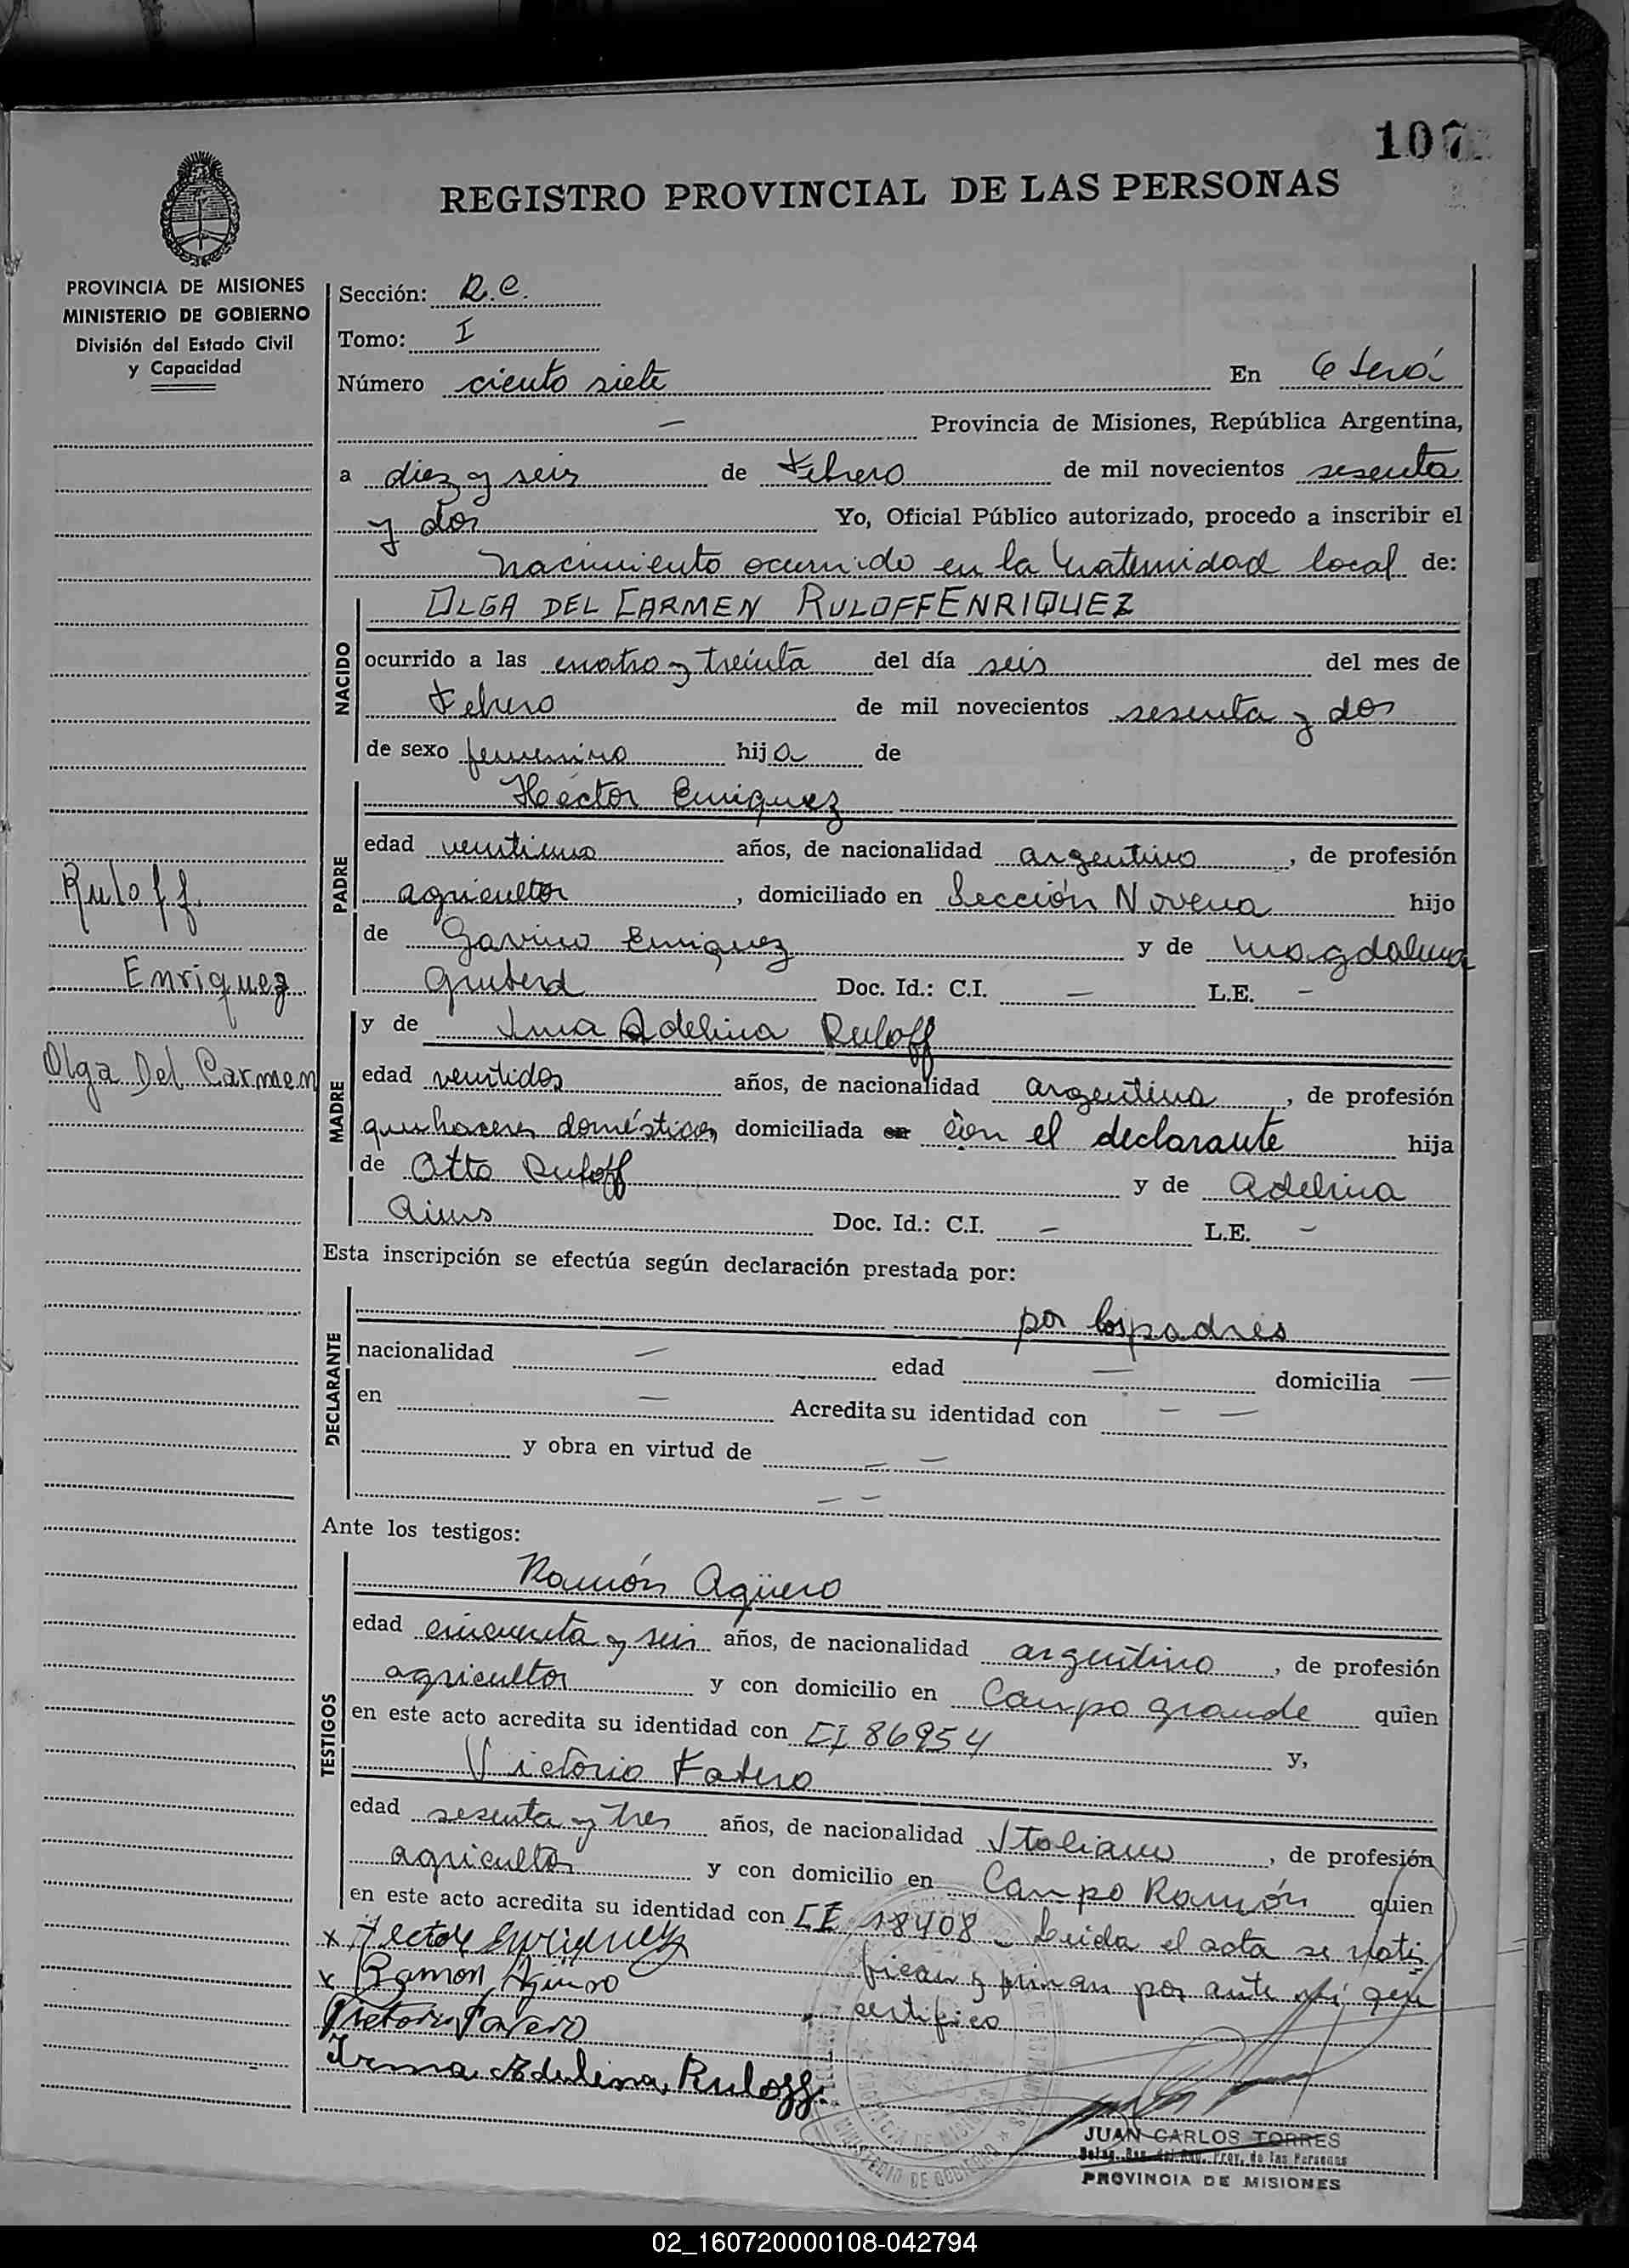 107
REGISTRO PROVINCIAL DE LAS PERSONAS
PROVINCIA DE MISIONES
MINISTERIO DE GOBIERNO
División del Estado Civil
y Capacidad
Ruloff
Enriquez
Olga Del Carmen
Sección: R.C.
Tomo: I
Número ciento siete En
— Provincia de Misiones, República Argentina,
a diez y seis de Febrero de mil novecientos sesenta
y dos Yo, Oficial Público autorizado, procedo a inscribir el
nacimiento ocurrido en la Maternidad local de:
NACIDO
OLGA DEL CARMEN RULOFF ENRIQUEZ
ocurrido a las cuatro y treinta del día seis del mes de
Febrero de mil novecientos sesenta y dos
de sexo femenino hija de
PADRE
Héctor Enriquez
edad ventiuno años, de nacionalidad argentino, de profesión
agricultor, domiciliado en Sección Novena hijo
de Gavino Enriquez y de Magdalena
Doc. Id.: C.I. — L.E. —
MADRE
y de Irma Adelina Ruloff
edad ventidos años, de nacionalidad argentina, de profesión
quehaceres domésticos, domiciliada en con el declarante hija
de Otto Ruloff y de Adelina
Doc. Id.: C.I. — L.E. —
Esta inscripción se efectúa según declaración prestada por:
DECLARANTE
por los padres
nacionalidad — edad — domicilia —
en — Acredita su identidad con — —
y obra en virtud de — —
— —
Ante los testigos:
TESTIGOS
Ramón Agüero
edad cincuenta y seis años, de nacionalidad argentino, de profesión
agricultor y con domicilio en Campo grande quien
en este acto acredita su identidad con CI 86954 y,
Victorio Favero
edad sesenta y tres años, de nacionalidad Italiano, de profesión
agricultor y con domicilio en Campo Ramón quien
en este acto acredita su identidad con CE 18408 - Leida el acta se noti
fican y firman por ante mí que
certifico
x Hector Enriquez
x Ramon Agüero
Victorio Favero
Irma Adelina Ruloff.
MINISTERIO DE GOBIERNO
PROVINCIA DE MISIONES
JUAN CARLOS TORRES
Prov. de las Personas
PROVINCIA DE MISIONES
02_160720000108-042794